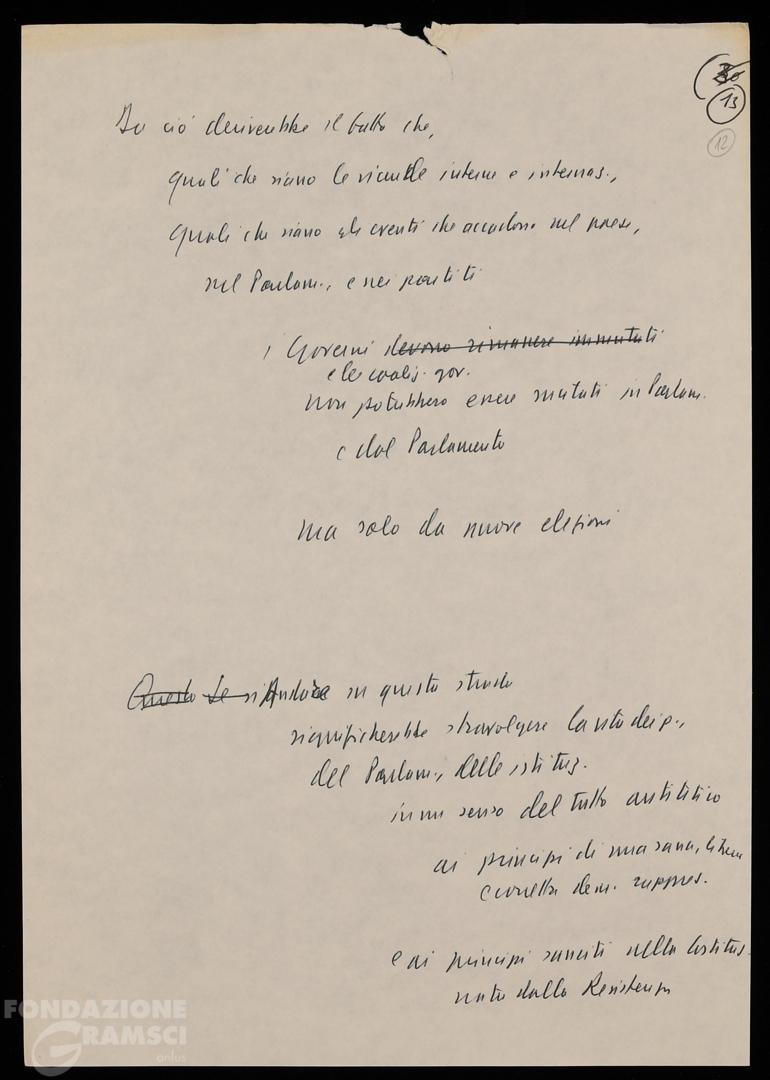 30
13
12
Da ciò deriverebbe il fatto che,
quali che siano le vicende interne e internaz.,
quali che siano gli eventi che accadono nel paese,
nel Parlam., e nei partiti
i Governi devono rimanere immutati
e le coaliz. gov.
non potrebbero essere mutati in Parlam.
e dal Parlamento
ma solo da nuove elezioni
Questo Se si Andare su questa strada
significherebbe stravolgere la vita dei p.,
del Parlam., delle istituz.
in un senso del tutto antitetico
ai principi di una sana, libera
e corretta dem. rappres.
e ai principi sanciti nella Costituz.
nata dalla Resistenza
FONDAZIONE
GRAMSCI
onlus